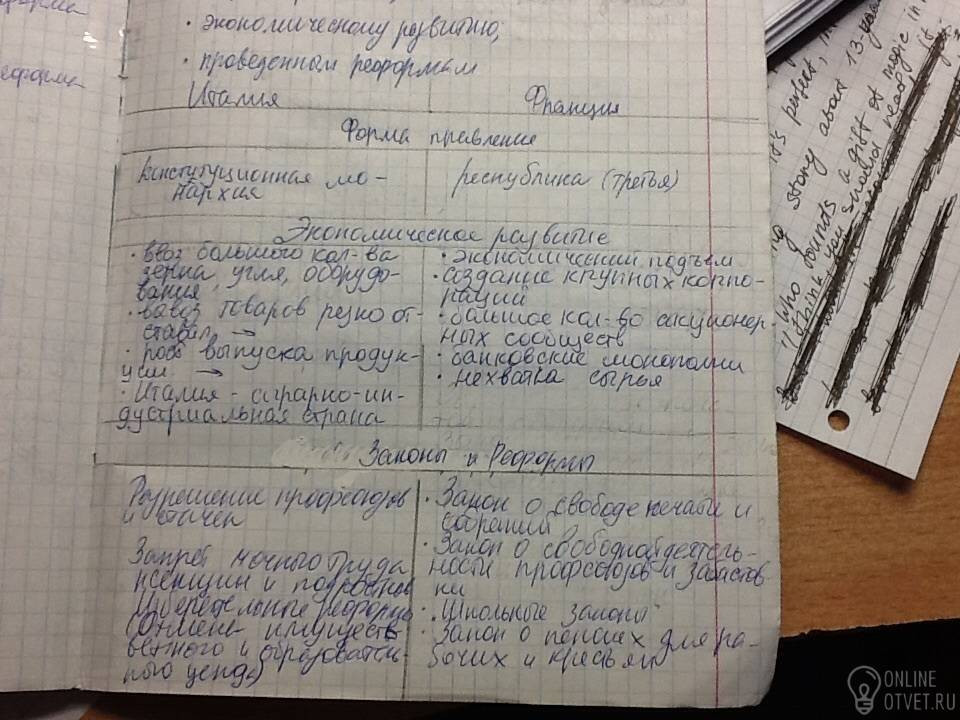 еформа
• экономическому развитию;
• проведенным реформам
Италия Франция
Форма правления
конституционная мо-
нархия
республика (третья)
Экономическое развитие
• ввоз большого кол-ва
зерна, угля, оборудо-
вания
• вывоз товаров резко от-
ставал →
• рост выпуска продук-
ции →
• Италия - аграрно-ин-
дустриальная страна
• экономический подъем
• создание крупных корпо-
раций
• большое кол-во акционер-
ных сообществ
• банковские монополии
• нехватка сырья
Законы и Реформы
Разрешение профсоюзов
и стачек
Запрет ночного труда
женщин и подростков
Избирательные реформы
(отмена имущест-
венного и образователь-
ного ценза)
• Закон о свободе печати и
собраний
• Закон о свободной деятель-
ности профсоюзов и забастов
ки
• Школьные законы
• Закон о пенсиях для ра-
бочих и крестьян
it's perfect,
story about 13-year
"Who sounds a gift of magic in
think you should read it
ONLINE
OTVET.RU